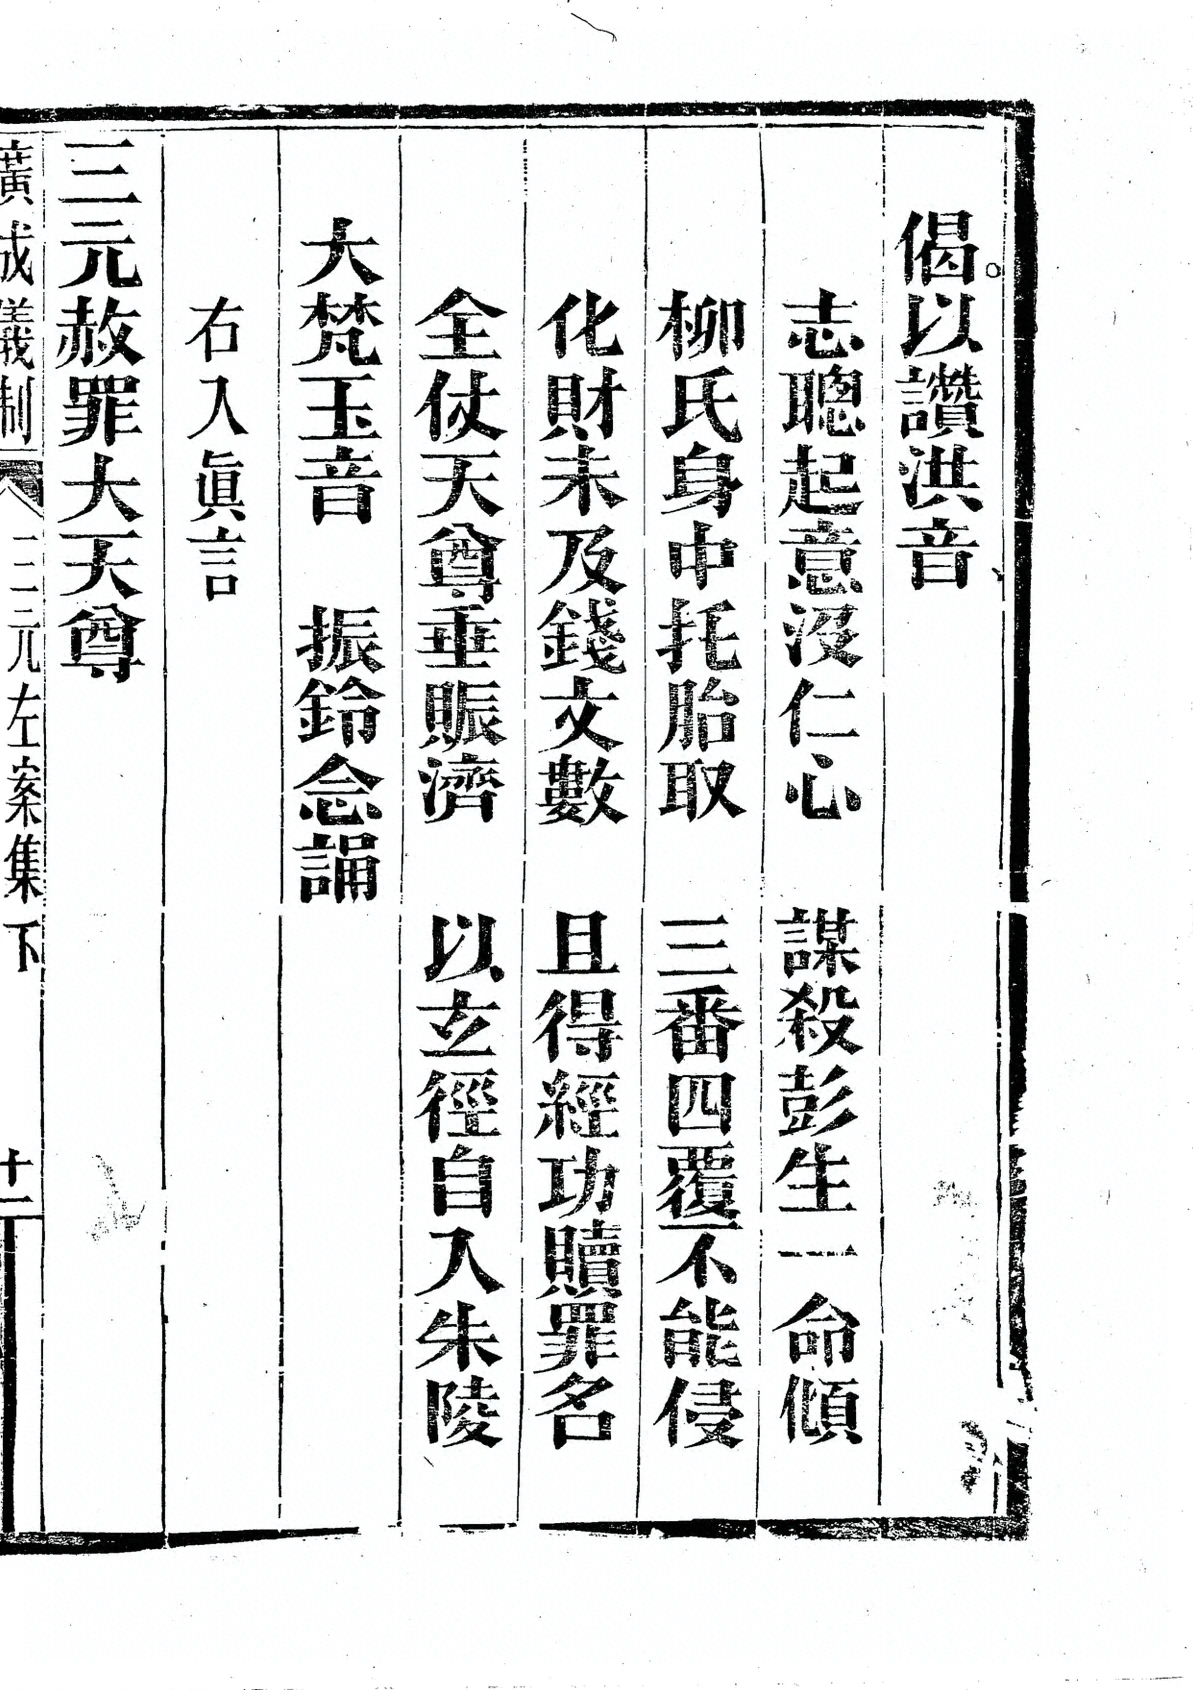 偈以讚洪音
志聰起意沒仁心　謀殺彭生一命傾
柳氏身中托胎取　三番四覆不能侵
化財未及錢文數　且得經功贖罪名
全仗天尊垂賑濟　以玄徑自入朱陵
大梵玉音　振鈴念誦
右入眞言
三元赦罪大天尊
廣成儀制　三元左案集下　十一